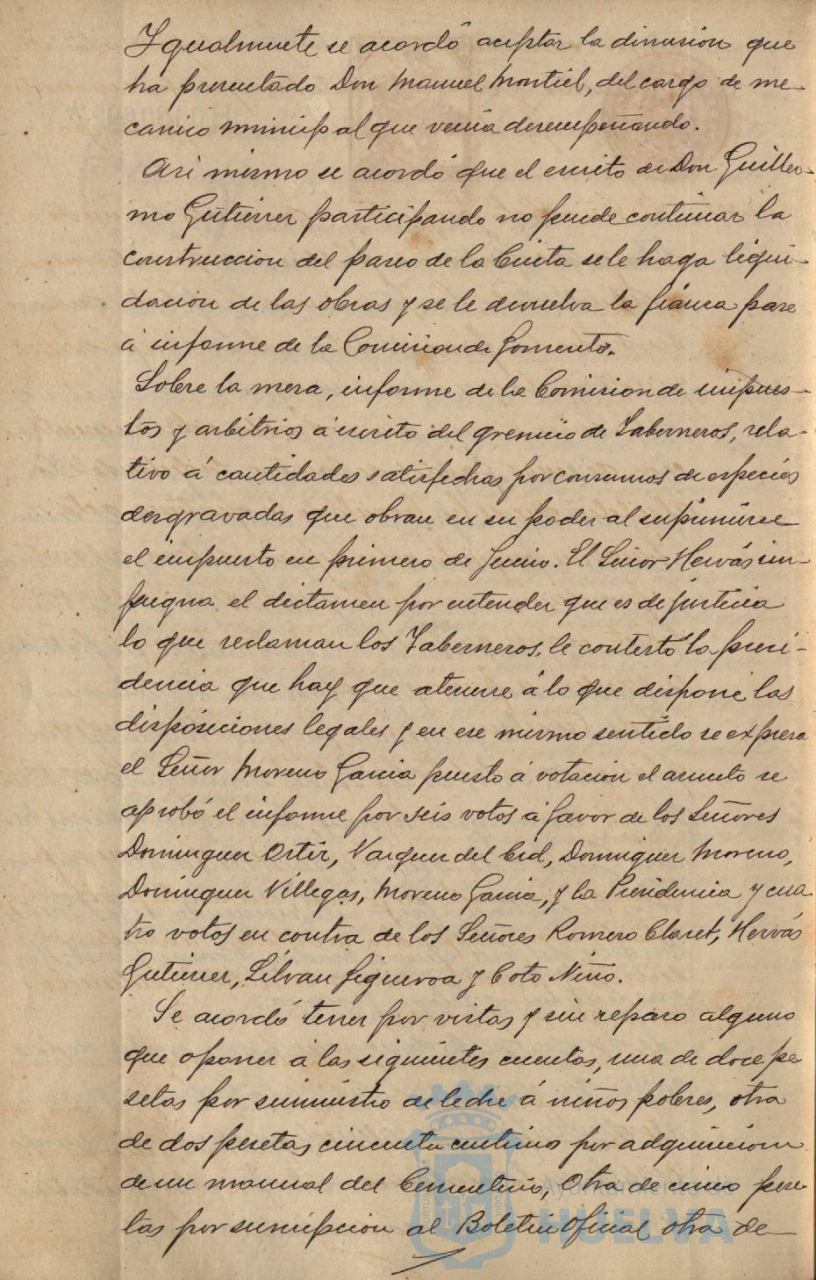 Ygualmente se acordó aceptar la dimisión que
ha presentado Don Manuel Montiel, del cargo de me-
canico municipal que venia desempeñando.
Asi mismo se acordó que el escrito de Don Guiller-
mo Gutierrez participando no puede continuar la
construccion del paseo de la Cinta se le haga liqui-
dación de las obras y se le devuelva la fianza pase
á informe de la Comision de Fomento.
Sobre la mesa, informe de la Comision de impues-
tos y arbitrios á escrito del gremio de Taberneros, rela-
tivo á cantidades satisfechas por consumos de especies
desgravadas que obran en su poder al suprimirse
el impuesto en primero de Junio. El Señor Hervás im-
pugna el dictamen por entender que es de justicia
lo que reclaman los Taberneros, le contestó la presi-
dencia que hay que atenerse á lo que dispone las
disposiciones legales y en ese mismo sentido se expresa
el Señor Moreno Garcia puesto á votación el asunto se
aprobó el informe por seis votos á favor de los Señores
Dominguez Ortiz, Vazquez del Cid, Dominguez Moreno,
Dominguez Villegas, Moreno Garcia, y la Presidencia y cua
tro votos en contra de los Señores Romero Claret, Hervás
Gutierrez, Silvan Figueroa y Coto Niño.
Se acordó tener por vistas y sin reparo alguno
que oponer á las siguientes cuentas, una de doce pe
setas por suministro de leche á niños pobres, otra
de dos pesetas cincuenta centimos por adquisicion
de un manual del Cementerio, Otra de cinco pese
tas por suscripción al Boletin Oficial otra de
HUELVA